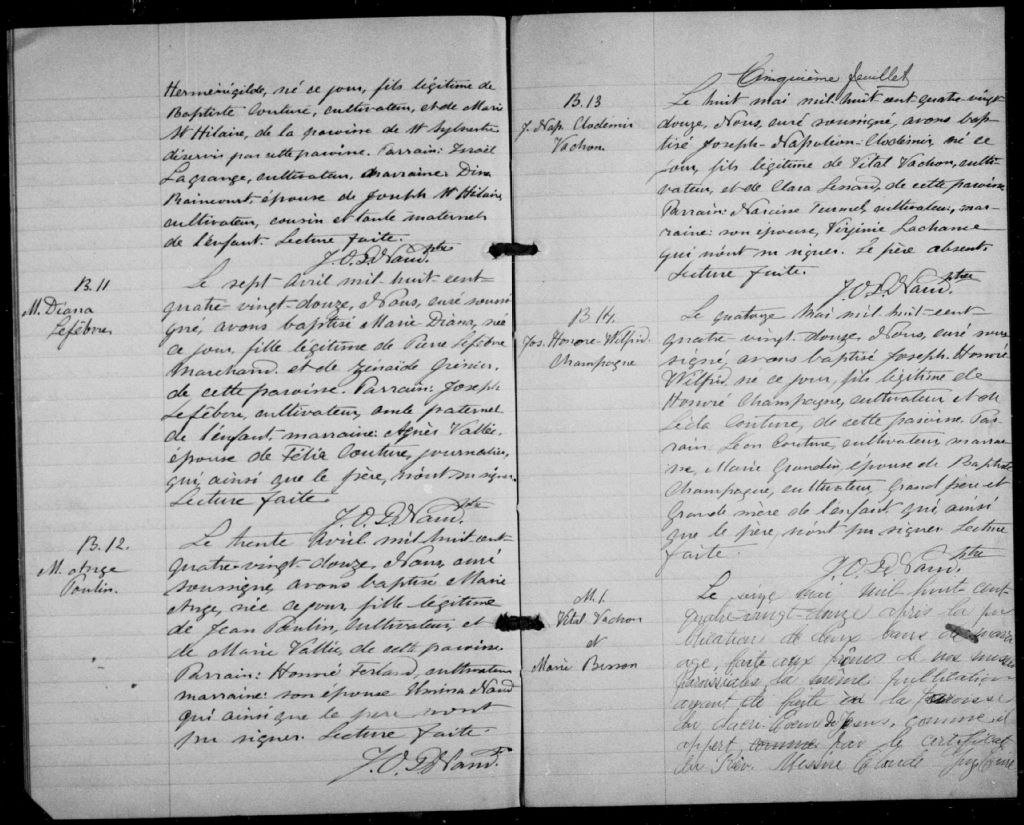 Herménégilde, né ce jour, fils légitime de
Baptiste Couture, cultivateur, et de Marie
St Hilaire, de la paroisse de St Sylvestre
désservis par cette paroisse. Parrain: Israël
Lagrange, cultivateur, marraine: Dina
Raincourt, épouse de Joseph St Hilaire,
cultivateur, cousin et tante maternels
de l'enfant. Lecture faite.
Ptre
B.11
M. Diana
Lefèbvre
Le sept avril mil-huit-cent-
quatre-vingt-douze, Nous, curé soussi-
gné, avons baptisé Marie Diana, née
ce jour, fille légitime de Pierre Lefèbvre
Marchand et de Zénaïde Grénier,
de cette paroisse. Parrain: Joseph
Lefèbvre, cultivateur, oncle paternel
de l'enfant, marraine: Agnès Vallée,
épouse de Félix Couture, journalier,
qui, ainsi que le père, n'ont su signer.
Lecture faite.
Ptre
B.12.
M. Ange
Poulin.
Le trente Avril mil huit cent-
quatre-vingt-douze, Nous, curé
soussigné, avons baptisé Marie
Ange, née ce jour, fille légitime
de Jean Poulin, cultivateur, et
de Marie Vallée, de cette paroisse.
Parrain: Honoré Ferland, cultivateur
marraine: son épouse
qui ainsi que le père n'ont
pu signer. Lecture faite.
Cinquième feuillet
B.13
J. Nap. Clodomir
Vachon.
Le huit mai mil huit cent quatre-vingt
douze, Nous, curé soussigné, avons bap-
tisé Joseph-Napoléon-Clodomir, né ce
jour, fils légitime de Vital Vachon, culti-
vateur, et de Clara Lessard, de cette paroisse
Parrain: Narcisse Turmel, cultivateur, mar-
raine: son épouse, Virginie Lachance
qui n'ont su signer. Le père absent.
Lecture faite.
Ptre
B.14.
Jos. Honoré Wilfrid
Champagne
Le quatorze Mai mil huit-cent-
quatre-vingt-douze, Nous, curé sous-
signé, avons baptisé Joseph-Honoré
Wilfrid, né ce jour, fils légitime de
Honoré Champagne, cultivateur et de
Léda Couture, de cette paroisse. Par-
rain Léon Couture, cultivateur, marrai-
ne, Marie Grondin, épouse de Baptiste
Champagne, cultivateur, Grand père et
Grande mère de l'enfant qui, ainsi
que le père, n'ont pu signer. Lecture
faite.
Ptre
M.1.
Vital Vachon
et
Marie Bisson
Le seize mai mil huit cent
quatre-vingt-douze après la pu
blications de deux bans de mari
age, faite aux prônes de nos messes
paroissiales, la même publication
ayant été faite en la paroisse
du Sacré-Coeur de Jésus, comme il
appert, comme par le certificat
du Rév. Messire Claude